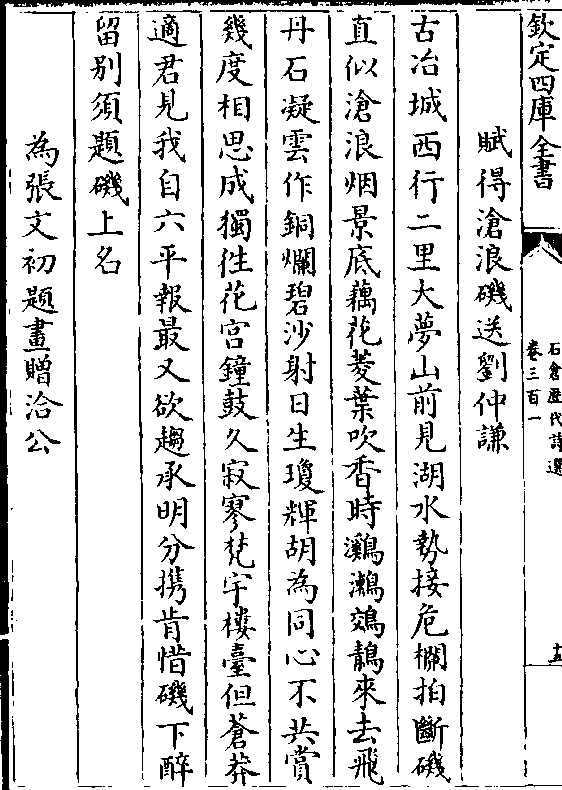 欽定四庫全書
石倉歴代詩選
卷三百一
十五
賦得滄浪磯送劉仲謙
古冶城西行二里大夢山前見湖水勢接危欄拍斷磯
直似滄浪烟景底藕花菱葉吹香時鸂鶒鵁鶄來去飛
丹石凝雲作銅爛碧沙射日生瓊輝胡為同心不共賞
幾度相思成獨徃花宫鐘鼓久寂寥梵宇樓臺但蒼莽
適君見我自六平報最又欲趨承明分携肯惜磯下醉
留别須題磯上名
為張文初題畫贈洽公